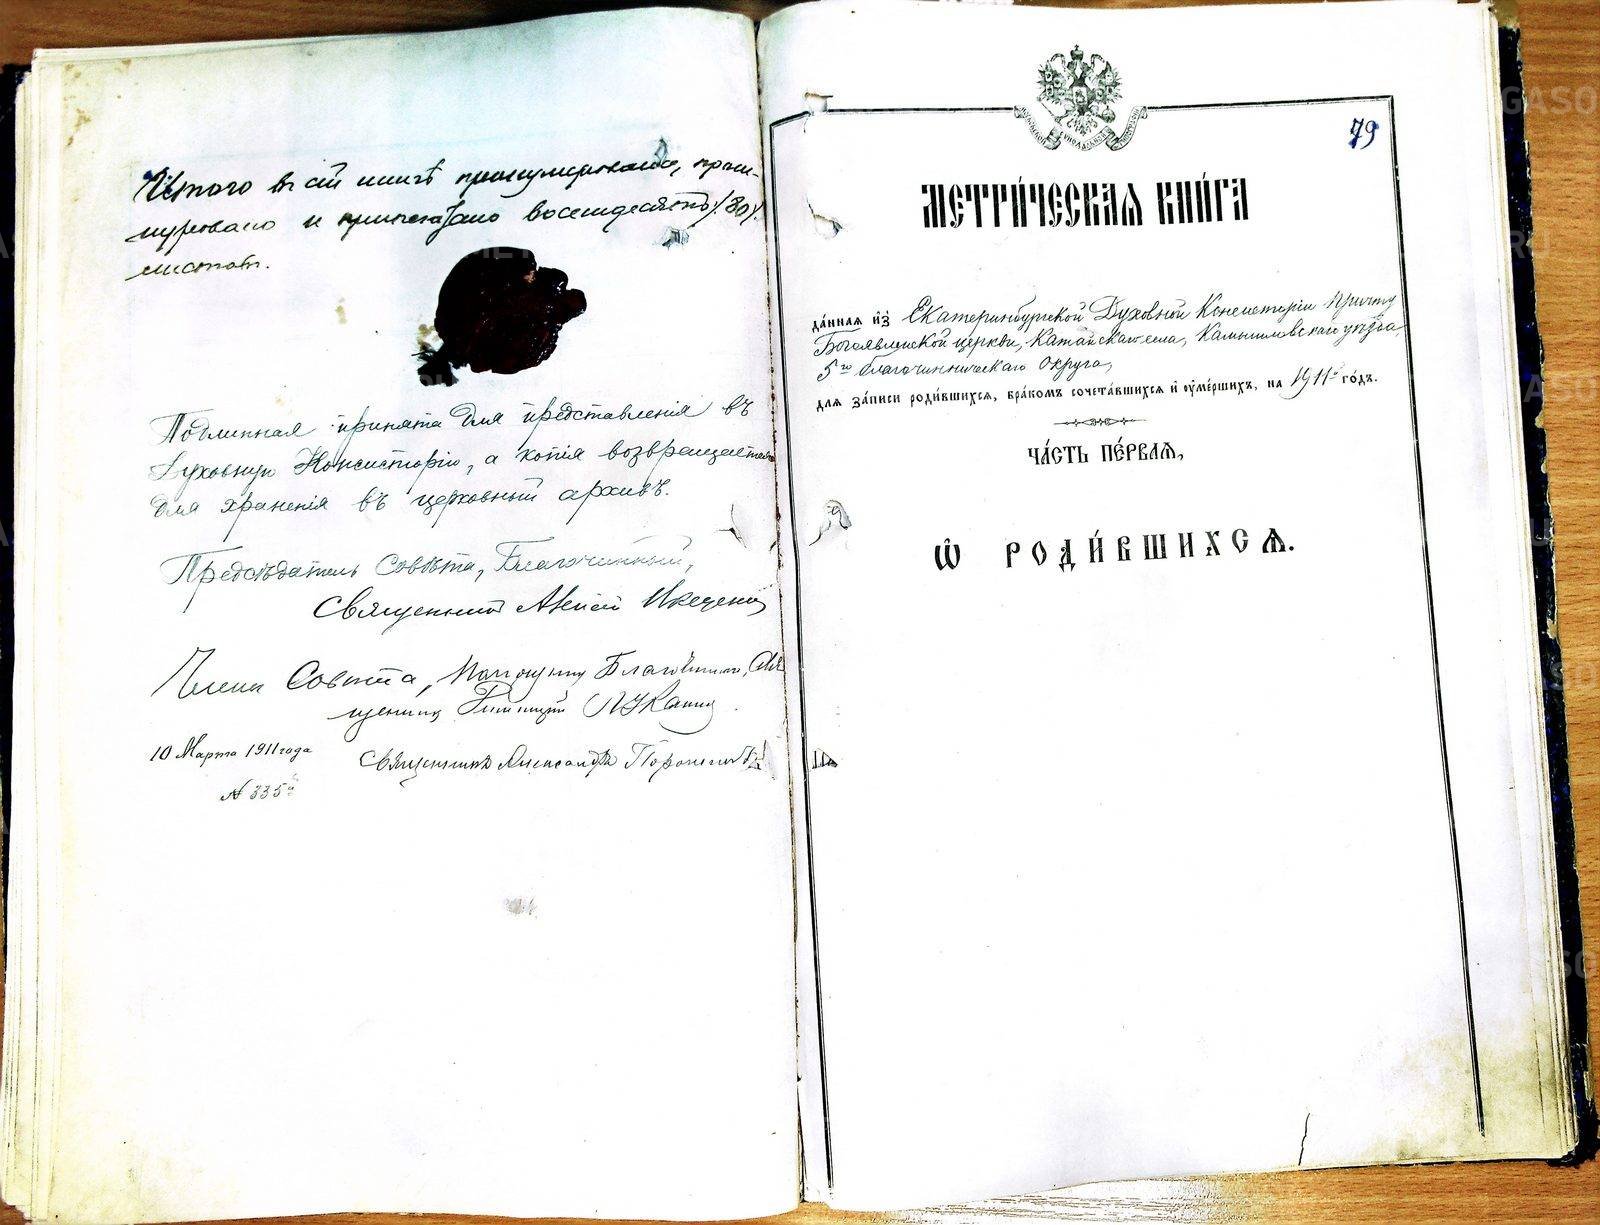 Итого въ сей книгѣ пронумеровано, прош-
нуровано и припечатано восемьдесятъ /80/
листовъ.
Подлинная принята для представленія въ
Духовную Консисторію, а копія возвращается
для храненія въ церковный архивъ.
Предсѣдатель Совѣта, Благочинный,
Священникъ Алексій
Члены Совѣта, Помощникъ Благочиннаго, Свя-
щенникъ
10 Марта 1911 года
Священникъ Александръ
№ 335
79
МЕТРИ́ЧЕСКАѦ КНИ́ГА
да́ннаѧ и҆з̾ Екатеринбургской Духовной Консисторіи причту
Богоявленской церкви, Катайскаго села, Камышловскаго уѣзда,
5го благочинническаго округа,
для за́писи роди́вшихсѧ, бра́комъ сочета́вшихсѧ и҆ ᲂу҆ме́ршихъ, на 1911й го́дъ.
ЧА́СТЬ ПЕ́РВАѦ,
Ѽ РОДИ́ВШИХСѦ.